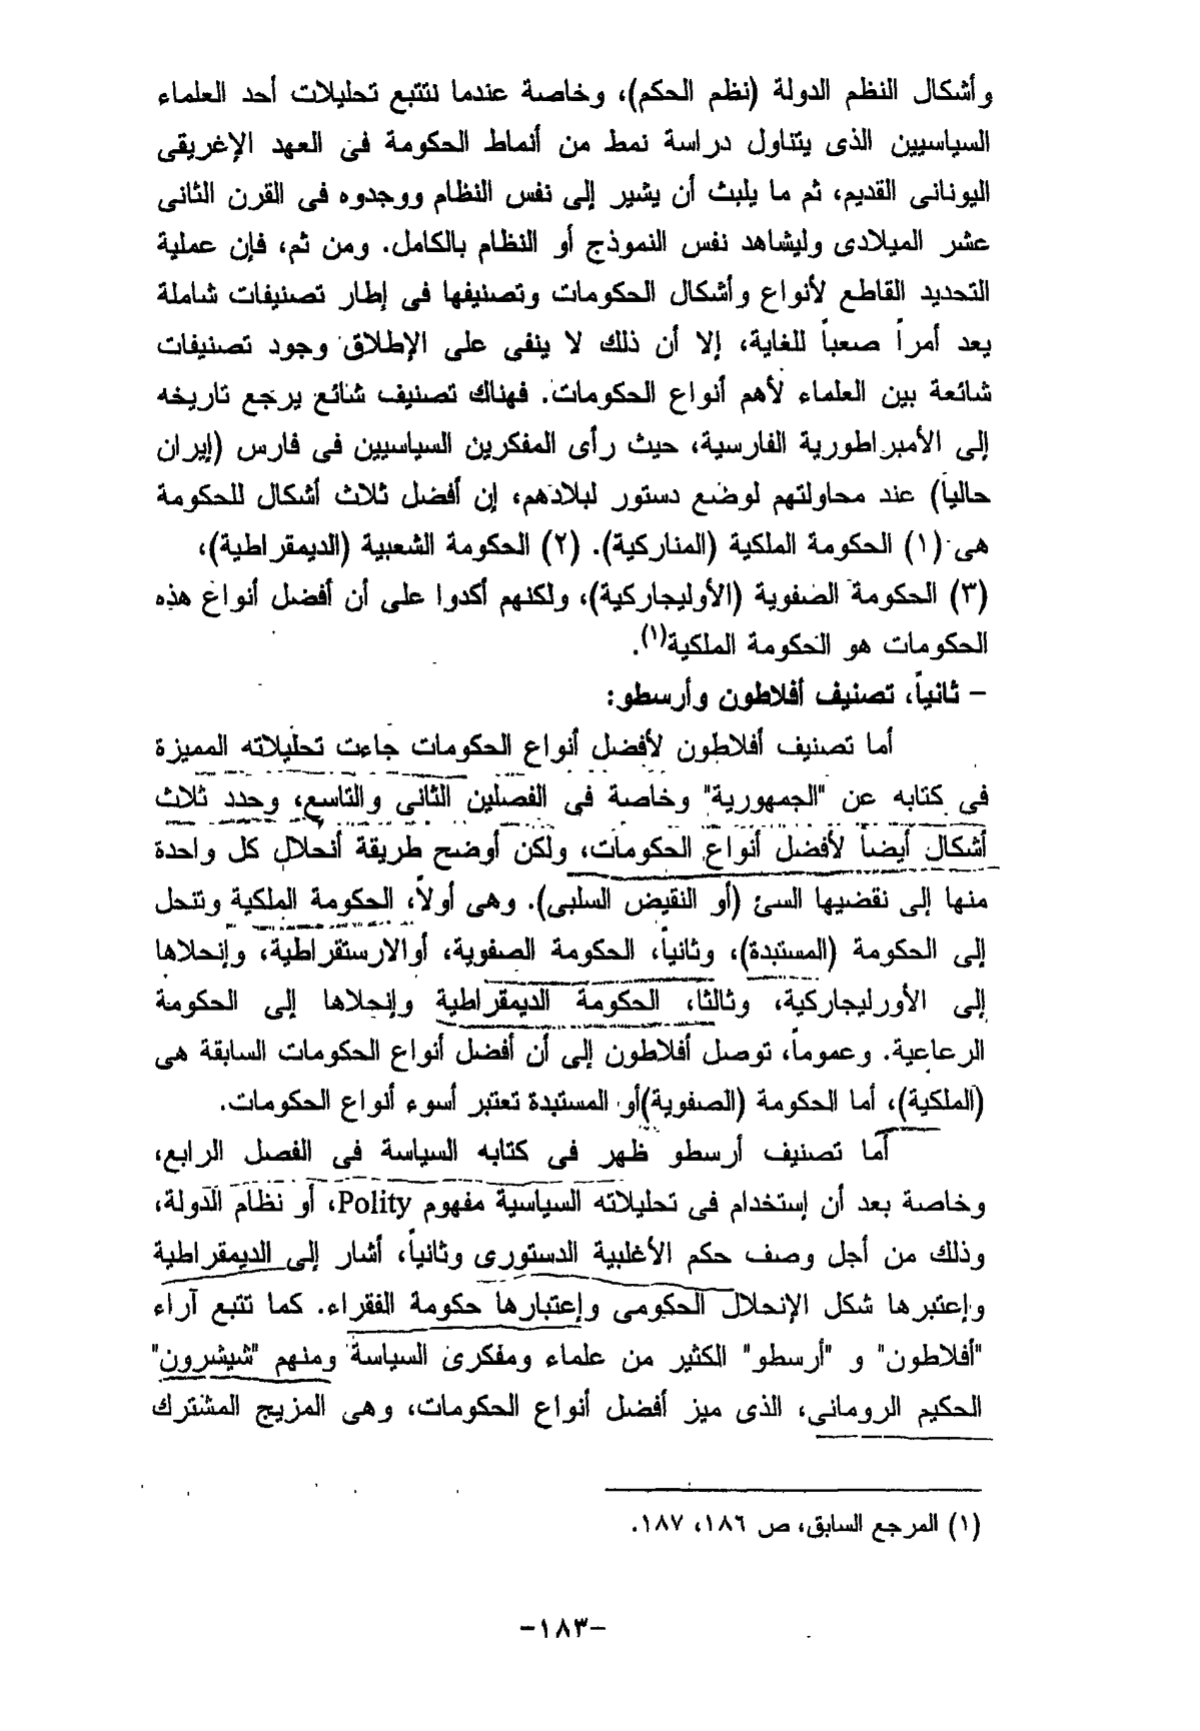 وأشكال النظم الدولة (نظم الحكم)، وخاصة عندما نتتبع تحليلات أحد العلماء
السياسيين الذى يتناول دراسة نمط من أنماط الحكومة فى العهد الإغريقى
اليونانى القديم، ثم ما يلبث أن يشير إلى نفس النظام ووجدوه فى القرن الثانى
عشر الميلادى وليشاهد نفس النموذج أو النظام بالكامل. ومن ثم، فإن عملية
التحديد القاطع لأنواع وأشكال الحكومات وتصنيفها فى إطار تصنيفات شاملة
يعد أمراً صعباً للغاية، إلا أن ذلك لا ينفى على الإطلاق وجود تصنيفات
شائعة بين العلماء لأهم أنواع الحكومات. فهناك تصنيف شائع يرجع تاريخه
إلى الأمبراطورية الفارسية، حيث رأى المفكرين السياسيين فى فارس (إيران
حالياً) عند محاولتهم لوضع دستور لبلادهم، إن أفضل ثلاث أشكال للحكومة
هى (١) الحكومة الملكية (المناركية). (٢) الحكومة الشعبية (الديمقراطية)،
(٣) الحكومة الصفوية (الأوليجاركية)، ولكنهم أكدوا على أن أفضل أنواع هذه
الحكومات هو الحكومة الملكية(١).
– ثانياً، تصنيف أفلاطون وأرسطو:
أما تصنيف أفلاطون لأفضل أنواع الحكومات جاءت تحليلاته المميزة
فى كتابه عن "الجمهورية" وخاصة فى الفصلين الثانى والتاسع، وحدد ثلاث
أشكال أيضاً لأفضل أنواع الحكومات، ولكن أوضح طريقة أنحلال كل واحدة
منها إلى نقضيها السئ (أو النقيض السلبى). وهى أولاً، الحكومة الملكية وتنحل
إلى الحكومة (المستبدة)، وثانياً، الحكومة الصفوية، أوالارستقراطية، وإنحلاها
إلى الأورليجاركية، وثالثا، الحكومة الديمقراطية وإنحلاها إلى الحكومة
الرعاعية. وعموماً، توصل أفلاطون إلى أن أفضل أنواع الحكومات السابقة هى
(الملكية)، أما الحكومة (الصفوية)أو المستبدة تعتبر أسوء أنواع الحكومات.
أما تصنيف أرسطو ظهر فى كتابه السياسة فى الفصل الرابع،
وخاصة بعد أن إستخدام فى تحليلاته السياسية مفهوم Polity، أو نظام الدولة،
وذلك من أجل وصف حكم الأغلبية الدستورى وثانياً، أشار إلى الديمقراطية
وإعتبرها شكل الإنحلال الحكومى وإعتبارها حكومة الفقراء. كما تتبع آراء
"أفلاطون" و "أرسطو" الكثير من علماء ومفكرى السياسة ومنهم "شيشرون"
الحكيم الرومانى، الذى ميز أفضل أنواع الحكومات، وهى المزيج المشترك
(١) المرجع السابق، ص ١٨٦، ١٨٧.
–١٨٣–